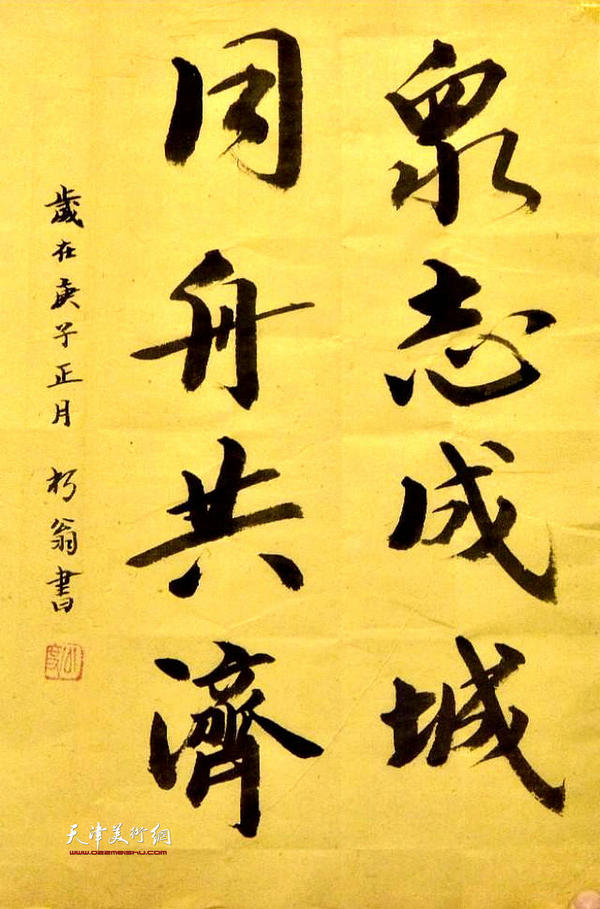 眾志成城
同舟共濟
歲在庚子正月 朽翁書
天津美術網
www.022meishu.com